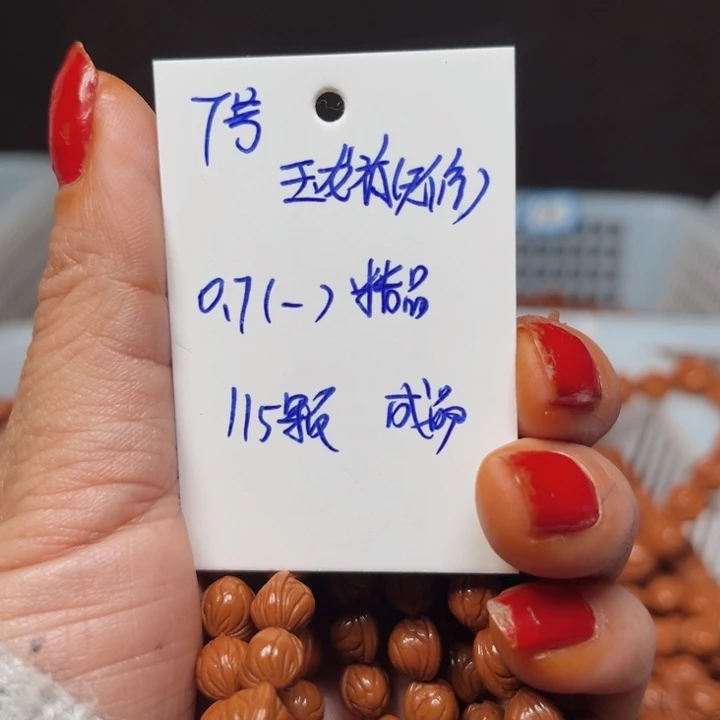 7号
玉龙苗(无修)
0.7(一) 精品
115颗 成品